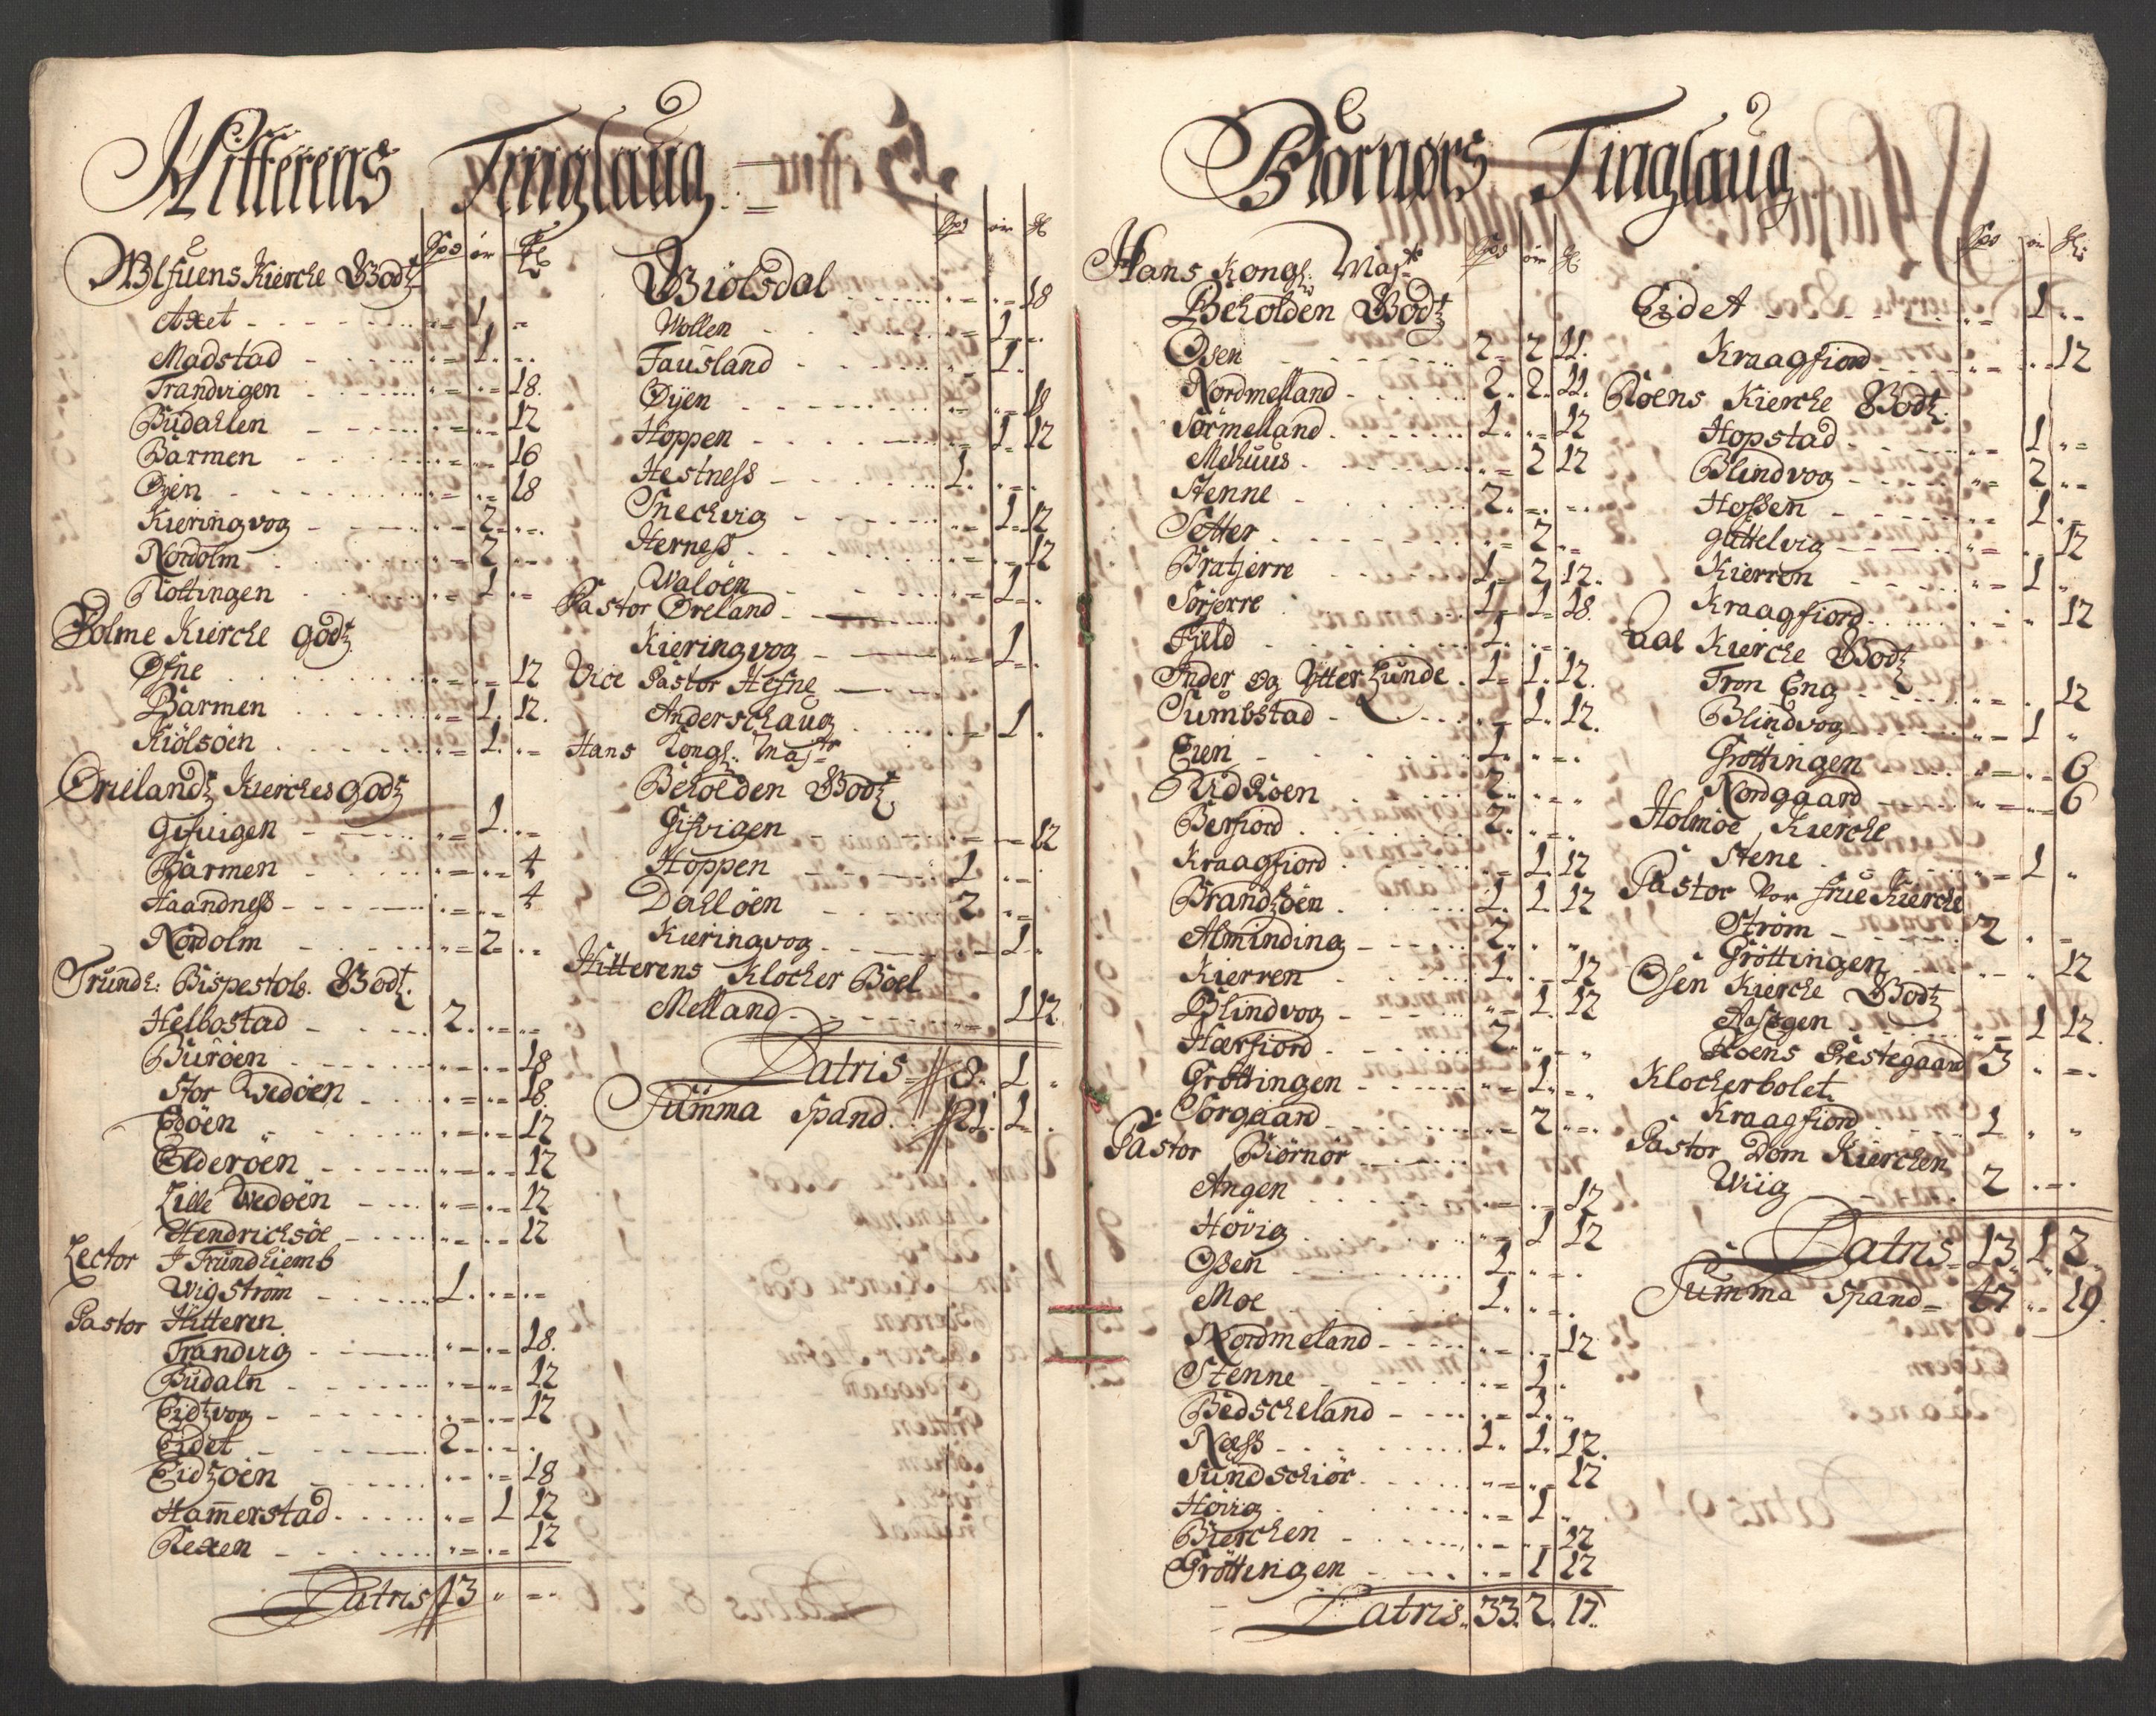 Hitterens Tinglaug
Spd ør
Kierche Godtz
Axet 1
Madstad 1
Trandvigen 18
Budahlen 12
Barmen 16
Øyen 18
Kieringvog 2
Nordolm 2
Røttingen 1
Holme Kierche godtz
Øfne 12
Barmen 1 12
Kiölsöen 1
Ørelandtz Kierches godtz
Gifuigen 1
Barmen 4
Haandness 4
Nordolm 2
Trundh: Bispestols Godtz
Helbostad 2
Buröen 18
Stor Wedöen 18
Edöen 12
Elderöen 12
Lille Wedöen 12
Hendrichsöe 12
Lector I Trundhiemb
Wigström 1
Pastor Hitteren
Trandvig 18
Budaln 12
Eidtzvog 12
Eidet 2
Eidtzöen 18
Hammerstad 1 12
Rexen 12
Latris 13
Spd ør
Giölsdal 18
Wollen 1
Fausland 1
Øyen 18
Hoppen 1 12
Hestness 1
Snechvig 1 12
Herness 12
Walöen 1
Pastor Øreland
Kieringvog 1
Vice Pastor Hefne
Anderschaug 1
Hans Kongl: Majtz
Beholden Godtz
Gifvigen 12
Hoppen 1
Dahlöen 2
Kieringvog 1
Hitterens Klocher Boel
Melland 1 12
Latris 8 1
Summa Spand 21 1
Biørnørs Tinglaug
Hans Kongl: Majtz
Beholden Godtz
Spd ør
Osen 2 2 11
Nordmelland 2 2 11
Sörmelland 1 12
Mehuus 2 12
Stenne 2
Setter 2
Bratjerre 1 2 12
Sörjerre 1 1 18
Fjeld 1
Inder og Ytter Hunde 1 1 12
Sumbstad 1 12
Eien 1
Udröen 2
Berfiord 2
Kraagfiord 1 12
Brandtzöen 1 1 12
Alminding 2
Kierren 1 12
Blindvog 1 12
Hærfiord 2
Gröttingen 1
Sorgaard 2
Pastor Biörnör
Angen 12
Hövig 1 12
Ossen 1
Moe 1
Nordmeland 12
Stenne 1
Bedscheland 1
Næss 1 1 12
Sundschiör 12
Höivig 1
Bierchen 12
Gröttingen 1 12
Latris 33 2 17
Spd ør
Eidet 1
Kraagfiord 12
Roens Kierche Godtz
Hopstad 1
Blindvog 2
Hossen 1
Guttelvig 12
Kierren 1
Kraagfiord 12
Aal Kierche Godtz
Tron Eng 12
Blindvog 1
Gröttingen 6
Nordgaard 6
Holmöe Kierche
Stene 1
Pastor Vor frue Kierche
Ström 2
Gröttingen 12
Osen Kierche Godtz
Aasegen 1 12
Roens Prestegaard 3
Klocherbolet
Kraagfiord 1
Pastor Dom Kierchen
Wiig 2
Latris 13 1 2
Summa Spand 47 19